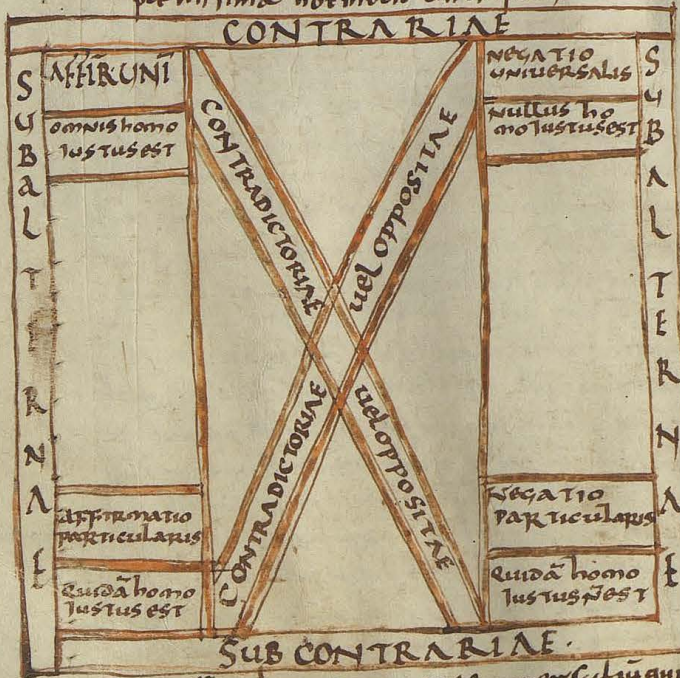 CONTRARIAE
SUBALTERNAE
AFFIRUNI
omnis homo
iustus est
NEGATIO
UNIVERSALIS
Nullus ho
mo iustus est
SUBALTERNAE
CONTRADICTORIAE
vel oppositae
CONTRADICTORIAE
vel oppositae
Affirmatio
particularis
Quidā homo
iustus est
NEGATIO
PARTICULARIS
Quidā homo
iustus ñ est
SUBCONTRARIAE.